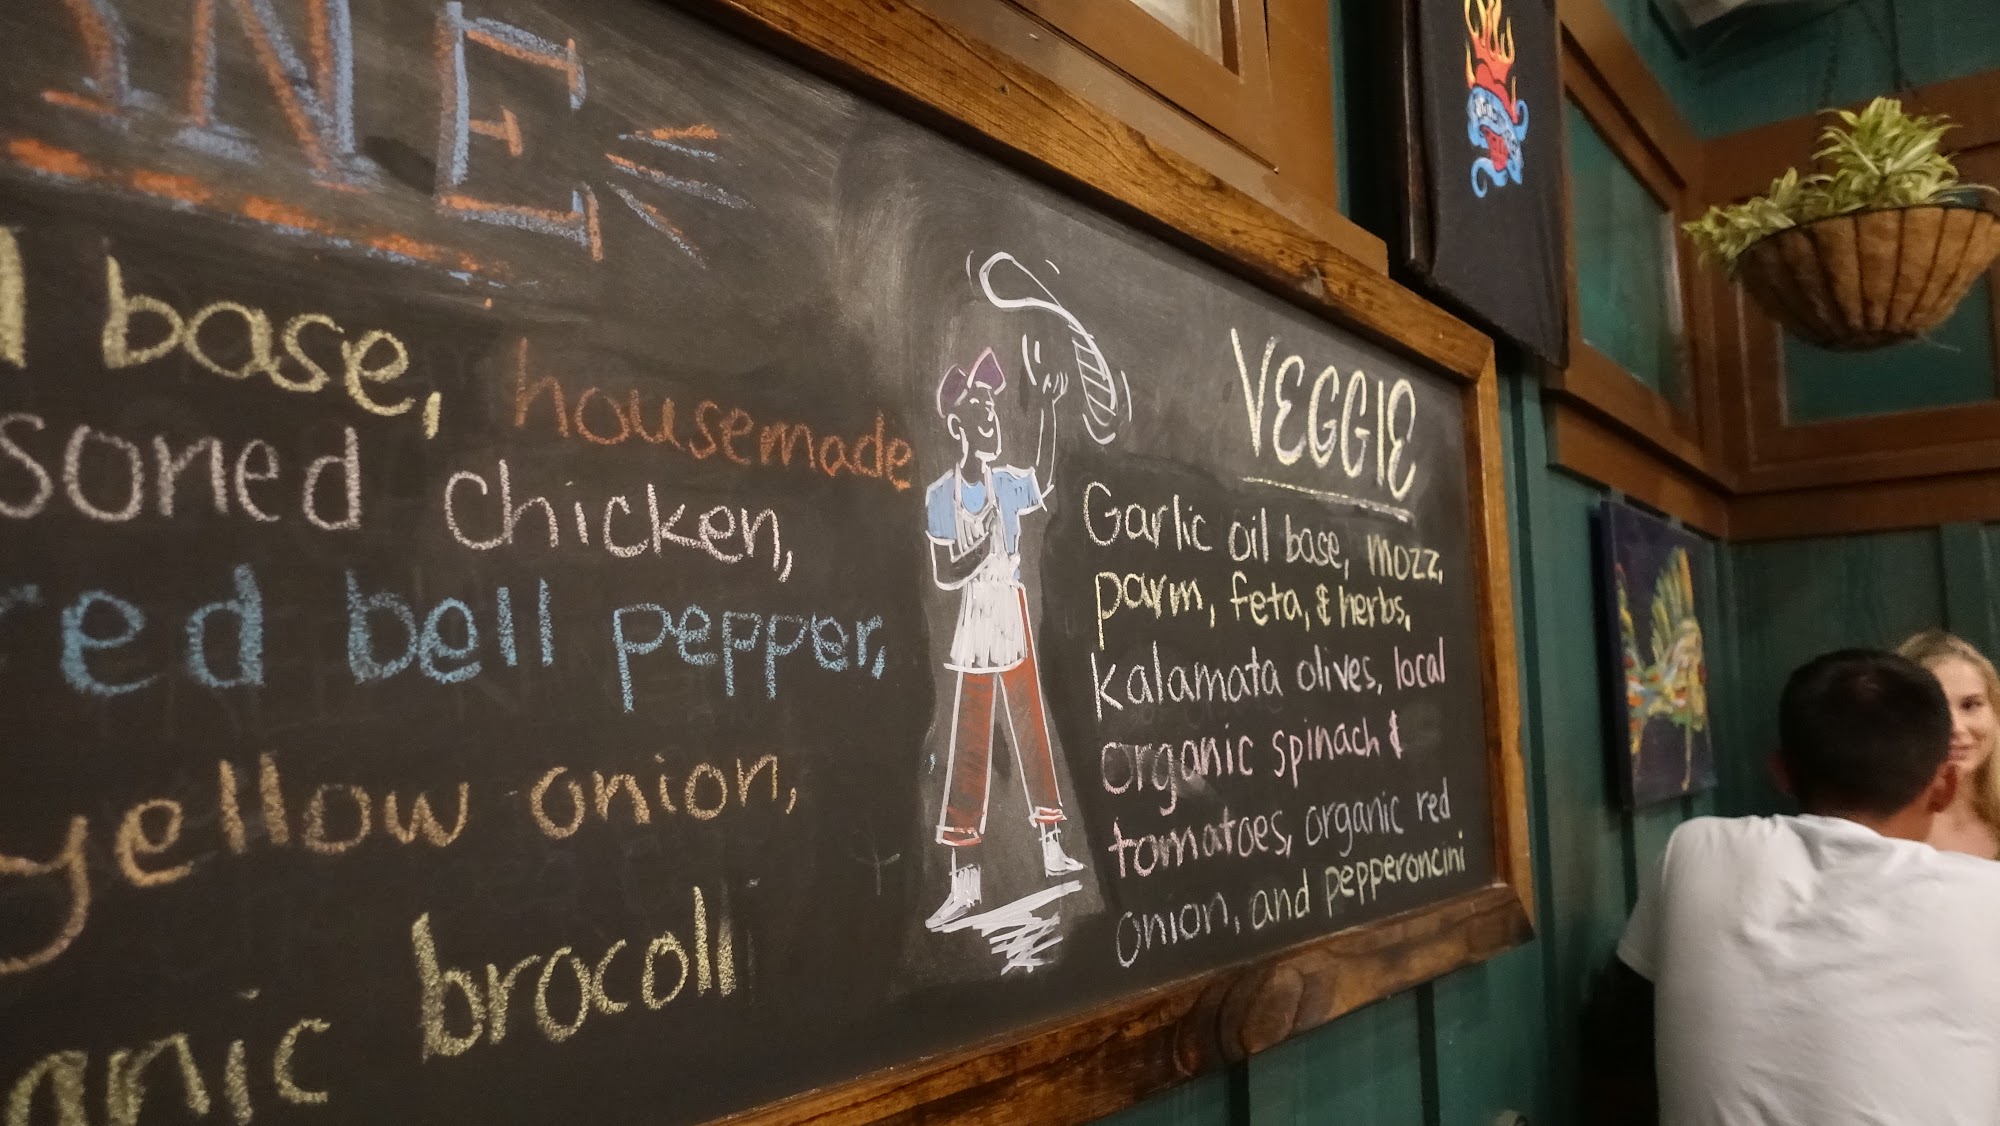 INE
base, housemade
soned chicken,
red bell pepper,
yellow onion,
anic brocoli
VEGGIE
Garlic oil base, mozz,
parm, feta, & herbs,
kalamata olives, local
organic spinach &
tomatoes, organic red
onion, and pepperoncini